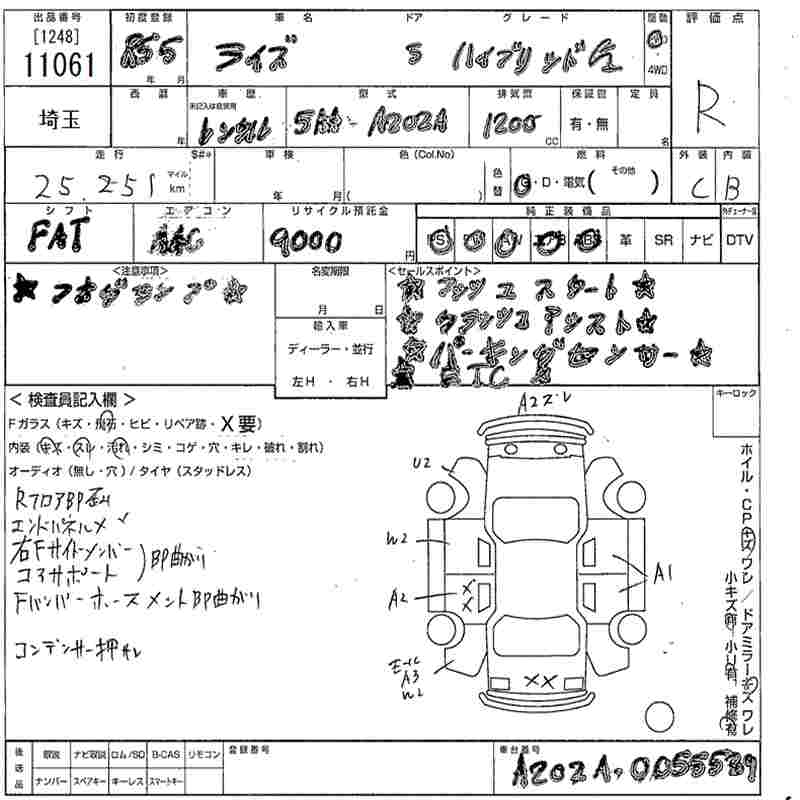 出品番号 初度登録 車名 ドア グレード 駆動 評価点
[1248]
11061 R5 5 ライズ 5 ハイブリッドG 4WD R
年 月
西暦 車歴 型式 排気量 保証書 定員
未記入は自家用
埼玉 レンタル 5AA-A202A 1200 CC 有・無 名
年
走行 S#* 車検 色(Col.No) 色替 燃料 外装 内装
25,251 マイル km 年 月 ( ) G・D・電気( その他 ) C B
シフト エアコン リサイクル預託金 純正装備品
FAT AAC 9000 円 PS PW AW エアB ABS 革 SR ナビ DTV
<注意事項> 名変期限 <セールスポイント>
★フォグランプ★ 月 日 ★プッシュスタート★
輸入車 ★クラッシュアシスト★
ディーラー・並行 ★パーキングセンサー★
左H ・ 右H ★ETC★
キーロック
<検査員記入欄>
Fガラス(キズ・飛石・ヒビ・リペア跡・X要)
内装(キズ・スレ・汚れ・シミ・コゲ・穴・キレ・破れ・割れ)
オーディオ(無し・穴)/タイヤ(スタッドレス)
RフロアBP歪み
エンドパネルメ
右Fサイドメンバー
コアサポート BP曲がり
Fバンパーホースメント BP曲がり
コンデンサー押され
A2ズレ
U2
W2
A2
XX
A1
モール
A3
W2
XX
ホイル・CPキズ/ワレ/ドアミラーキズワレ
小キズ有、小U有、補修有
後送品 取説 ナビ取説 ロム/SD B-CAS リモコン 登録番号 車台番号
ナンバー スペアキー キーレス スマートキー A202A-0055539